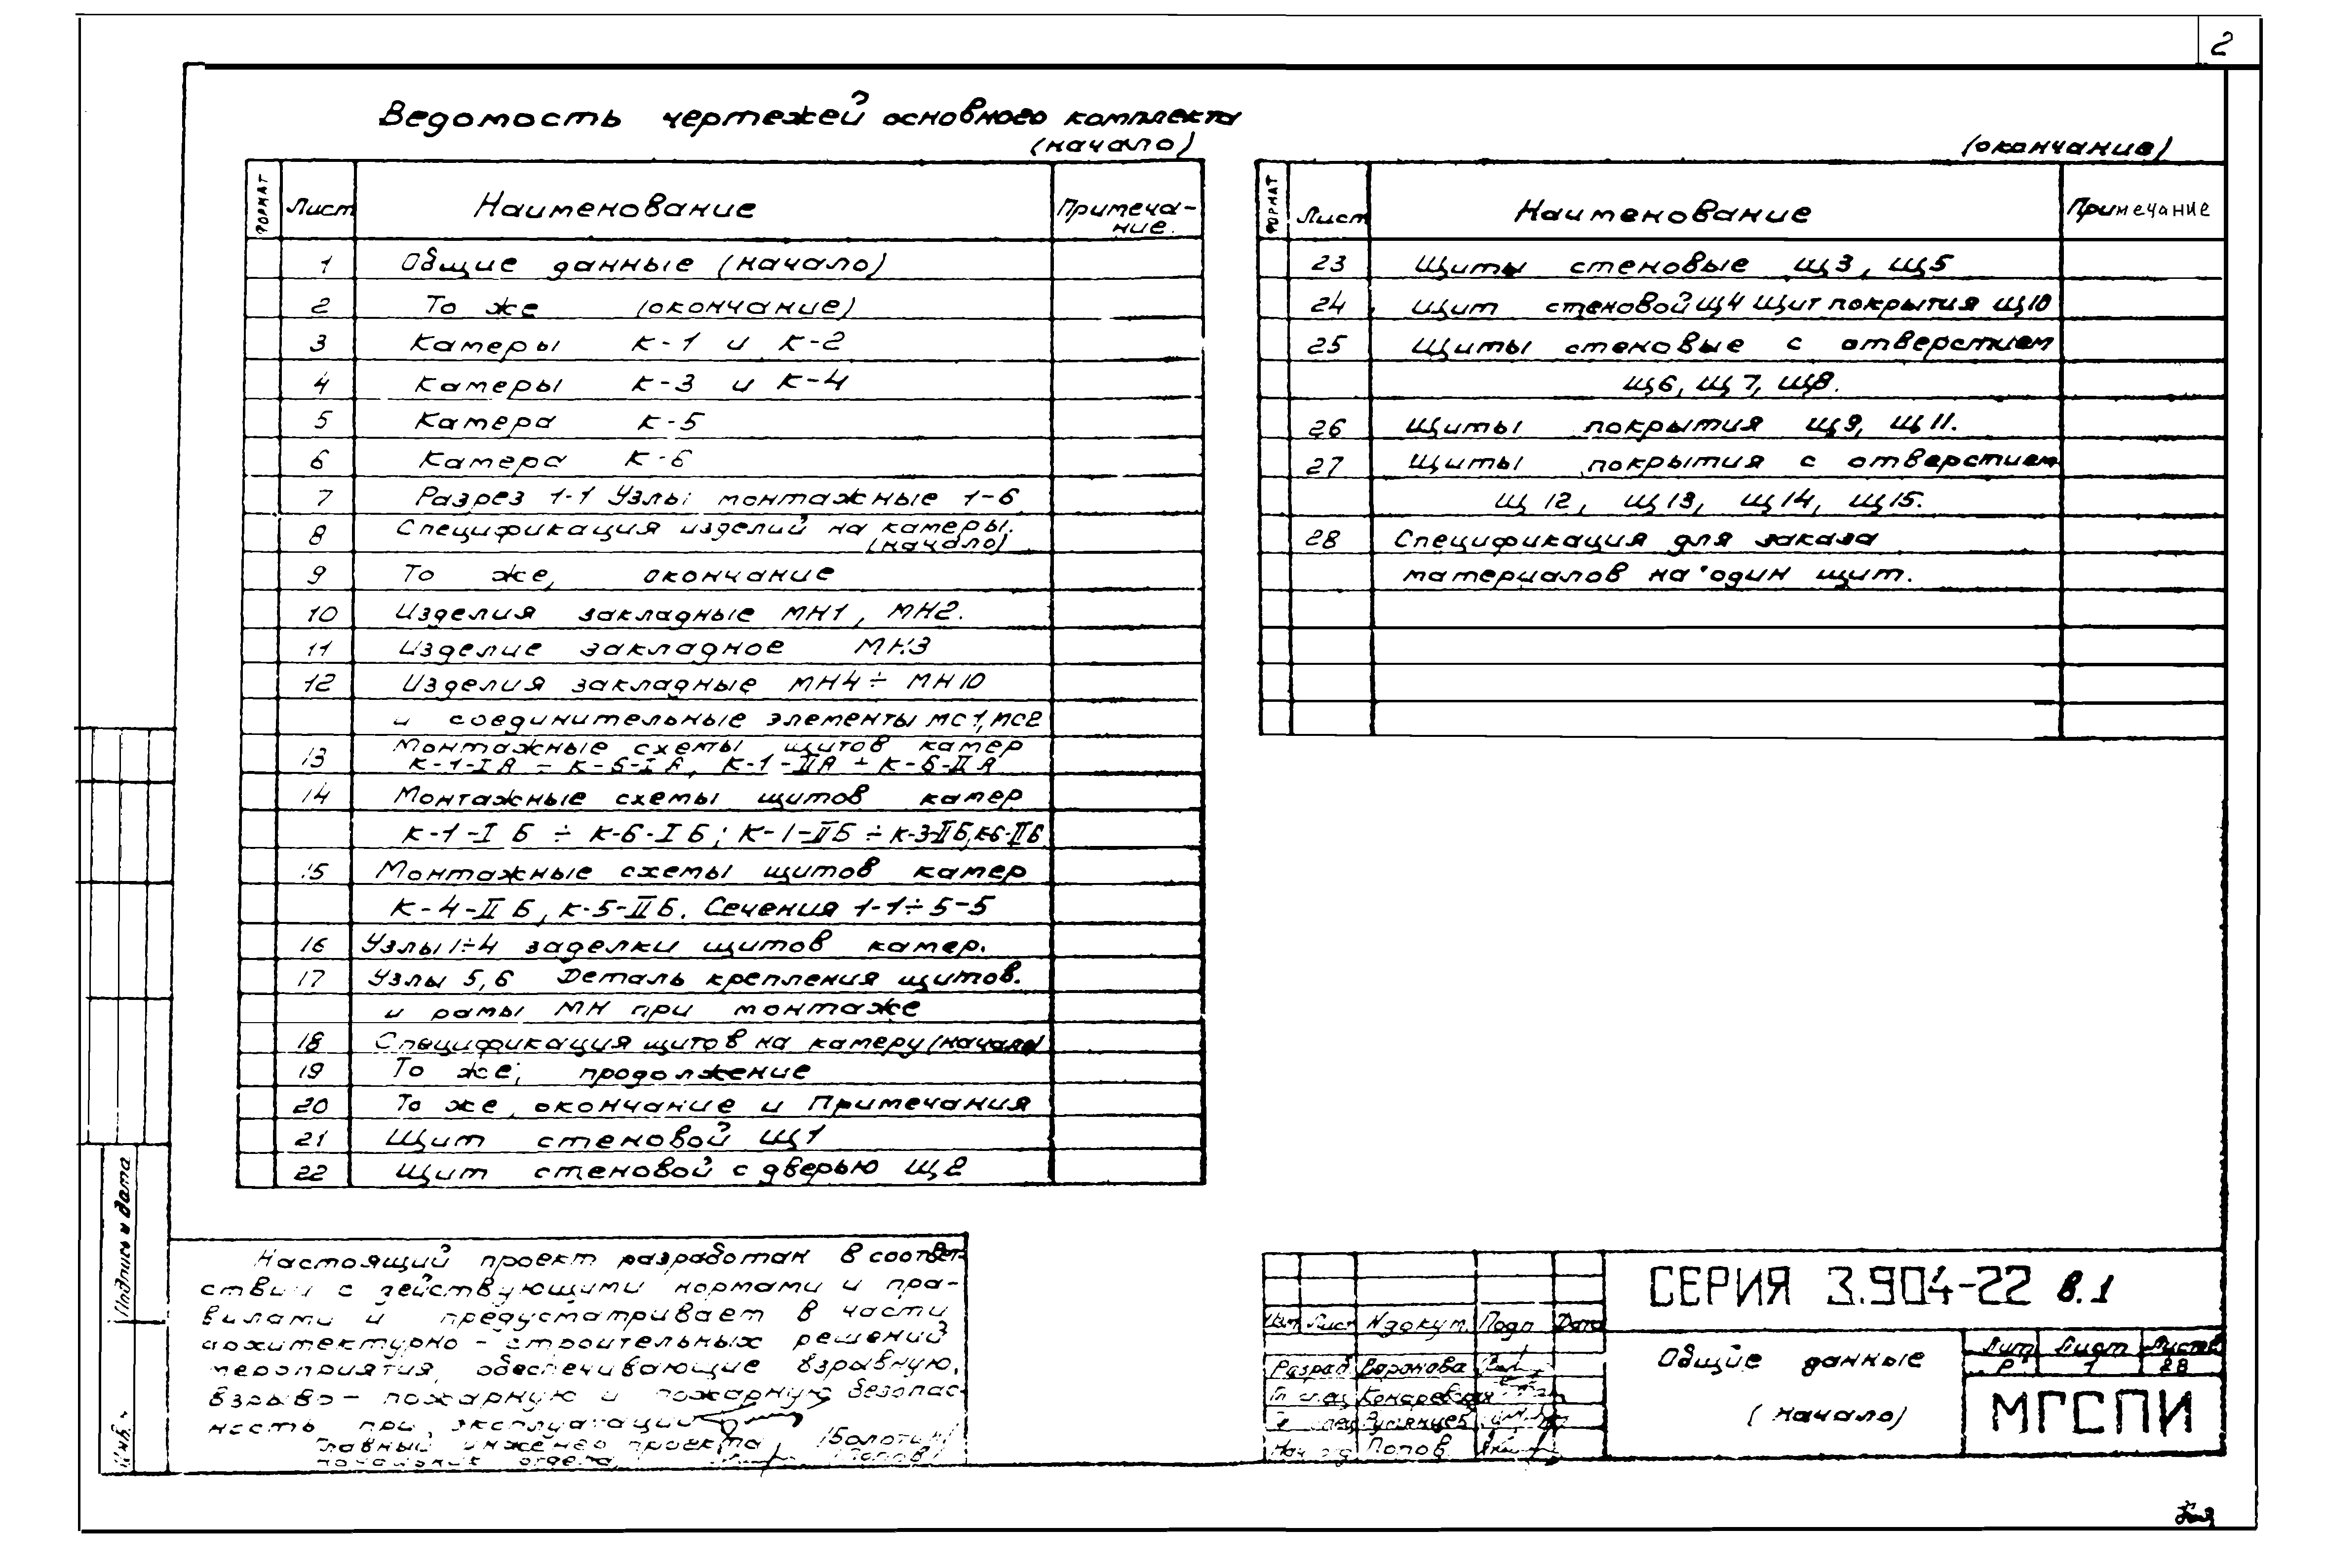 2
Ведомость чертежей основного комплекта
(начало)
ФОРМАТ Лист Наименование Примеча-
ние.
1 Общие данные (начало)
2 То же (окончание)
3 Камеры К-1 и К-2
4 Камеры К-3 и К-4
5 Камера К-5
6 Камера К-6
7 Разрез 1-1 Узлы монтажные 1-6
8 Спецификация изделий на камеры.
(начало)
9 То же, окончание
10 Изделия закладные МН1, МН2.
11 Изделие закладное МН3
12 Изделия закладные МН4÷МН10
и соединительные элементы МС1, МС2
13 Монтажные схемы щитов камер
К-1-IА ÷ К-6-IА, К-1-IIА ÷ К-6-IIА
14 Монтажные схемы щитов камер
К-1-IБ ÷ К-6-IБ; К-1-IIБ ÷ К-3-IIБ, К-6-IIБ
15 Монтажные схемы щитов камер
К-4-IIБ, К-5-IIБ. Сечения 1-1÷5-5
16 Узлы 1÷4 заделки щитов камер.
17 Узлы 5,6 Деталь крепления щитов.
и рамы МН при монтаже
18 Спецификация щитов на камеру (начало)
19 То же, продолжение
20 То же, окончание и Примечания
21 Щит стеновой Щ1
22 Щит стеновой с дверью Щ2
(окончание)
ФОРМАТ Лист Наименование Примечание
23 Щиты стеновые Щ3, Щ5
24 Щит стеновой Щ4 Щит покрытия Щ10
25 Щиты стеновые с отверстием
Щ6, Щ7, Щ8.
26 Щиты покрытия Щ9, Щ11.
27 Щиты покрытия с отверстием
Щ12, Щ13, Щ14, Щ15.
28 Спецификация для заказа
материалов на один щит.
Подпись и дата
Инв.
Настоящий проект разработан в соответ-
ствии с действующими нормами и пра-
вилами и предусматривает в части
архитектурно-строительных решений
мероприятия, обеспечивающие взрывную,
взрыво-пожарную и пожарную безопас-
ность при эксплуатации
Главный инженер проекта /Болотин/
Начальник отдела /Попов/
Изм Лист №докум. Подп Дата
Разраб Воронова
Гл спец Комаревская
спец Румянцев
Нач отд Попов
СЕРИЯ 3.904-22 в.1
Общие данные
(начало)
Лит Лист Листов
Р 1 28
МГСПИ